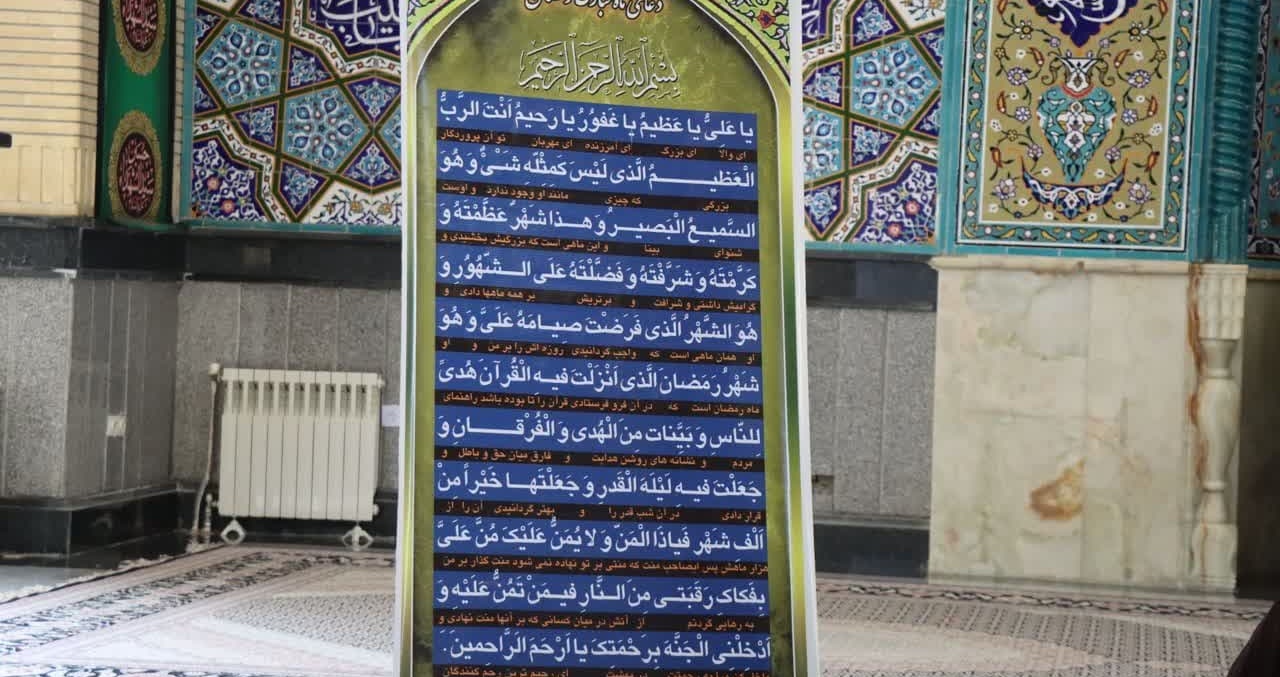 دعای ماه مبارک رمضان
بِسْمِ اللهِ الرَّحْمنِ الرَّحیمِ
یا عَلِیُّ یا عَظیمُ یا غَفُورُ یا رَحیمُ اَنْتَ الرَّبُّ
ای والا ای بزرگ ای آمرزنده ای مهربان تو آن پروردگار
الْعَظیـمُ الَّذی لَیْسَ کَمِثْلِهِ شَیْءٌ وَ هُوَ
بزرگی که چیزی مانند او وجود ندارد و اوست
السَّمیـعُ الْبَصیـرُ وَ هـذا شَهْرٌ عَظَّمْتَهُ وَ
شنوای بینا و این ماهی است که بزرگیش بخشیدی و
کَرَّمْتَهُ وَ شَرَّفْتَهُ وَ فَضَّلْتَهُ عَلَی الـشُّهُورِ وَ
گرامیش داشتی و شرافت و برتریش بر همه ماهها دادی و
هُوَ الشَّهْرُ الَّذی فَرَضْتَ صِیـامَهُ عَلَیَّ وَ هُوَ
او همان ماهی است که واجب گردانیدی روزه اش را بر من و او
شَهْرُ رَمَضانَ الَّذی اَنْزَلْتَ فیهِ الْقُرْآنَ هُدیً
ماه رمضان است که در آن فرو فرستادی قرآن را تا بوده باشد راهنمای
لِلنّاسِ وَ بَیِّناتٍ مِنَ الْهُدی وَ الْفُرْقـانِ وَ
مردم و نشانه های روشن هدایت و فارق میان حق و باطل و
جَعَلْتَ فیـهِ لَیْلَةَ الْقَدرِ وَ جَعَلْتَهـا خَیْراً مِنْ
قرار دادی در آن شب قدر را و بهتر گردانیدی آن را از
اَلْفِ شَهْرٍ فَیاذَا الْمَنِّ وَ لا یُمَنُّ عَلَیْکَ مُنَّ عَلَیَّ
هزار ماهش پس ایصاحب منت که منتی بر تو نهاده نمی شود منت گذار بر من
بِفَکاکِ رَقَبَتی مِنَ الـنَّارِ فیمَنْ تَمُنُّ عَلَیْهِ وَ
به رهایی گردنم از آتش در میان کسانی که بر آنها منت نهادی و
اَدْخِلْنِی الْجَنَّةَ بِرَحْمَتِکَ یا اَرْحَمَ الرَّاحِمینَ .
ای رحیم ترین رحم کنندگان